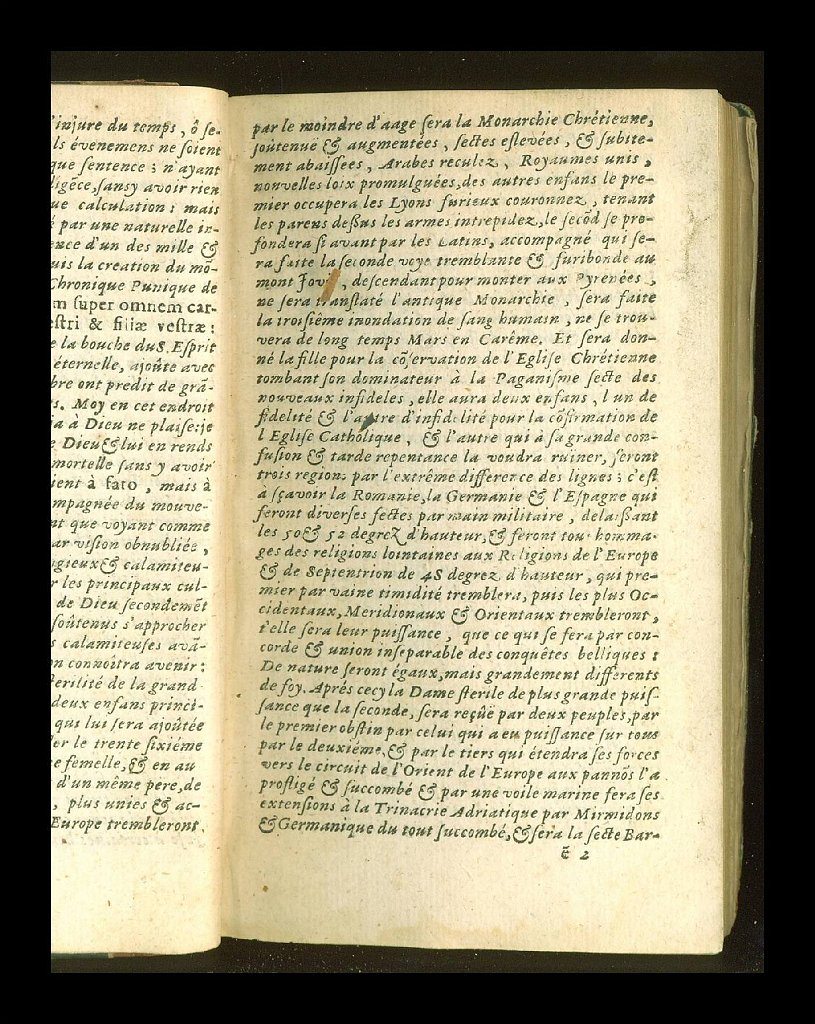 'injure du temps, ô se-
ls évenemens ne soient
que sentence ; n'ayant
ligēce, sansy avoir rien
ue calculation : mais
é par une naturelle in-
ence d'un des mille &
uis la creation du mo-
Chronique Punique de
m super omnem car-
estri & filiæ vestræ :
e la bouche du S. Esprit
éternelle, ajoûte avec
bre ont predit de grā-
s. Moy en cet endroit
ia à Dieu ne plaise: je
e Dieu & lui en rends
mortelle sans y avoir
ient à fato, mais à
mpagnée du mouve-
nt que voyant comme
ar vision obnubliée,
ngieux & calamiteu-
r les principaux cul-
de Dieu secondemēt
soûtenus s'approcher
s calamiteuses avā-
on connoîtra avenir :
terilité de la grand
deux enfans princi-
qui lui sera ajoûtée
er le trente sixiéme
e femelle, & en au
d'un même pere, de
, plus unies & ac-
Europe trembleront.
par le moindre d'aage sera la Monarchie Chrétienne,
soûtenuë & augmentées, sectes eslevées, & subite-
ment abaissées, Arabes reculez, Royaumes unis,
nouvelles loix promulguées, des autres enfans le pre-
mier occupera les Lyons furieux couronnez, tenant
les parens dessus les armes intrepidez, le secōd se pro-
fondera si avant par les Latins, accompagné qui se-
ra faite la seconde voye tremblante & furibonde au
mont Jovis, descendant pour monter aux Pyrenées,
ne sera translaté l'antique Monarchie, sera faite
la troisiême inondation de sang humain, ne se trou-
vera de long temps Mars en Carême. Et sera don-
né la fille pour la cōservation de l'Eglise Chrétienne
tombant son dominateur à la Paganisme secte des
nouveaux infideles, elle aura deux enfans, l'un de
fidelité & l'autre d'infidelité pour la cōfirmation de
l'Eglise Catholique, & l'autre qui à sa grande con-
fusion & tarde repentance la voudra ruiner, seront
trois regions par l'extrême difference des lignes ; c'est
à sçavoir la Romanie, la Germanie & l'Espagne qui
feront diverses sectes par main militaire, delaissant
les 50 & 52 degrez d'hauteur, & feront tous homma-
ges des religions lointaines aux Religions de l'Europe
& de Septentrion de 48 degrez d'hauteur, qui pre-
mier par vaine timidité tremblera, puis les plus Oc-
cidentaux, Meridionaux & Orientaux trembleront,
t'elle sera leur puissance, que ce qui se fera par con-
corde & union inseparable des conquêtes belliques :
De nature seront égaux, mais grandement differents
de foy. Aprés cecy la Dame sterile de plus grande puis-
sance que la seconde, sera reçûë par deux peuples, par
le premier obstin par celui qui a eu puissance sur tous
par le deuxiéme, & par le tiers qui étendra ses forces
vers le circuit de l'Orient de l'Europe aux pannōs l'a
profligé & succombé & par une voile marine fera ses
extensions à la Trinacrie Adriatique par Mirmidons
& Germanique du tout succombé, & sera la secte Bar-
ē 2